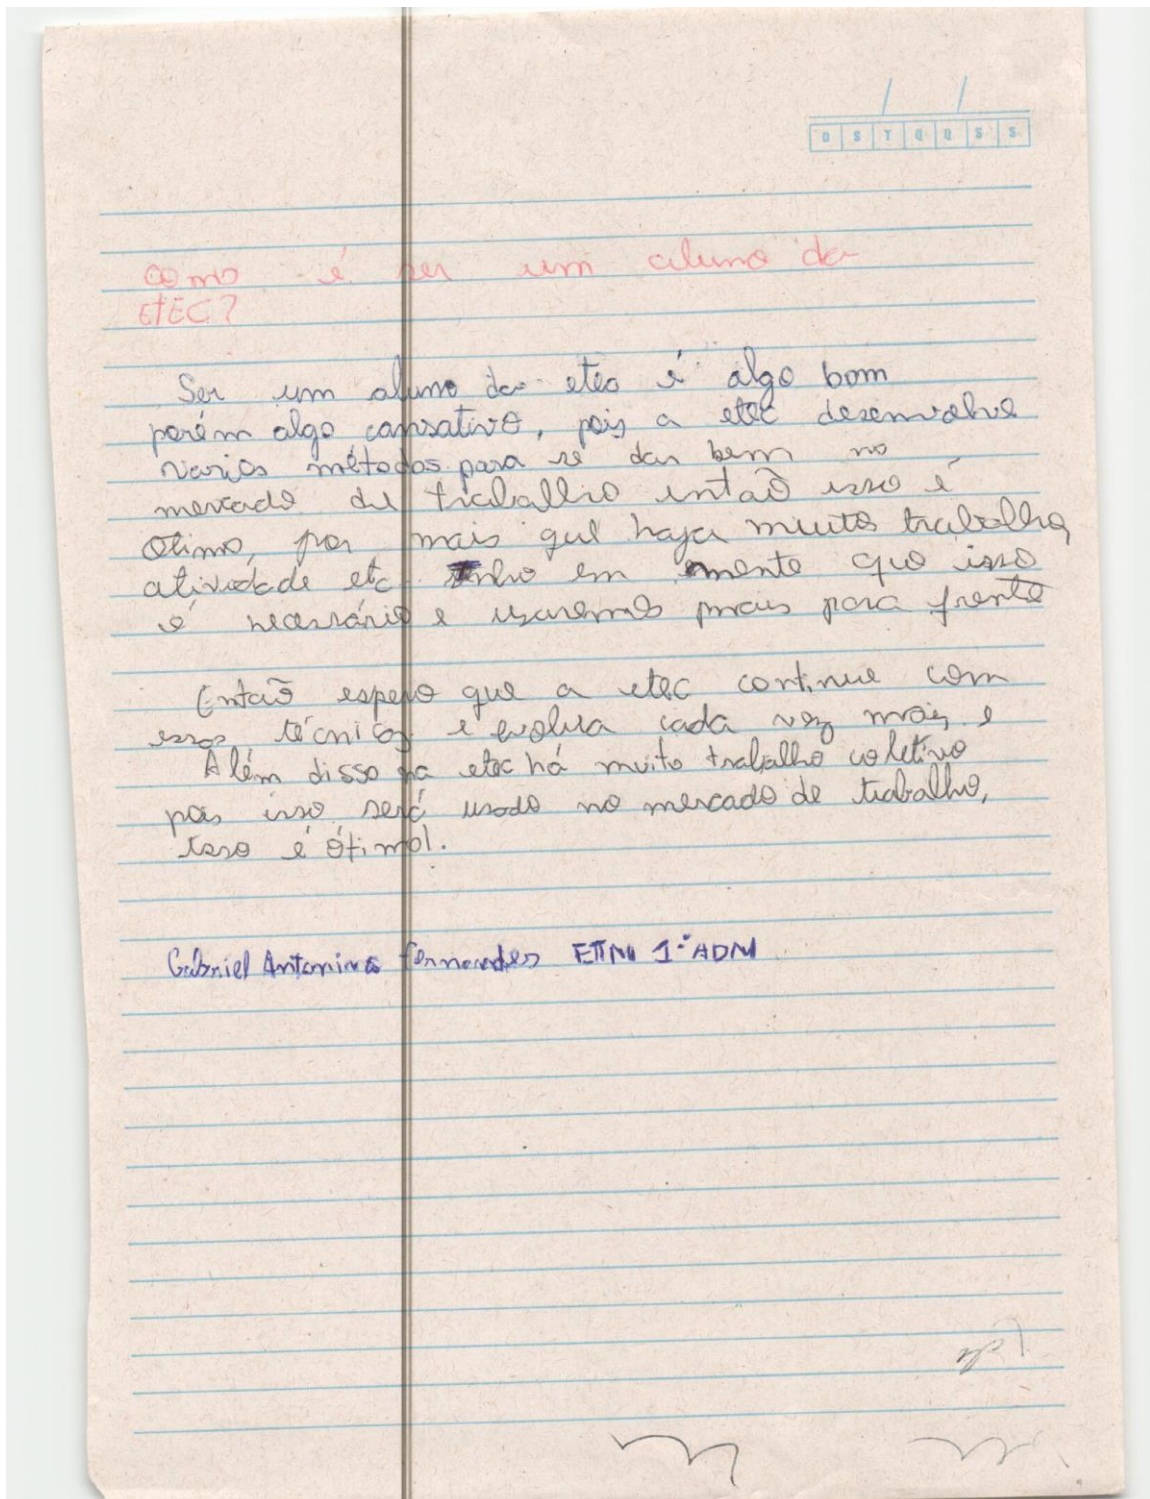 D S T Q Q S S
Como é ser um aluno da
ETEC?
Ser um aluno da etec é algo bom
porém algo cansativo, pois a etec desenvolve
varios métodos para se dar bem no
mercado de trabalho então isso é
otimo, por mais que haja muito trabalho,
atividade etc. Tenho em mente que isso
é necessário e usaremos mais para frente
Então espero que a etec continue com
essas técnicas e evolua cada vez mais, e
Além disso na etec há muito trabalho coletivo
pois isso será usado no mercado de trabalho,
isso é ótimo!.
Gabriel Antonino Fernandes ETIM 1º ADM